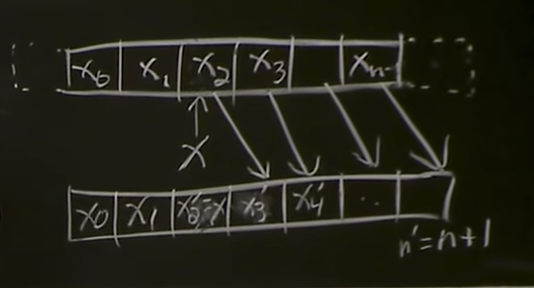 x₀ x₁ x₂ x₃ xₙ₋
x
x₀ x₁ x₂'=x x₃' x₄' ..
n'=n+1